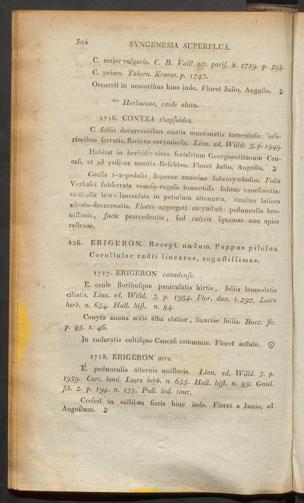 304 SYNGENESIA SUPERFLUA.
C. major vulgaris. C. B. Vaill. act. paris. a. 1719. p. 298.
C. prima. Tabern. Kraeut. p. 1247.
Occurrit in nemoribus hinc inde. Floret Julio, Augusto. ♃
** Herbaceae, caule alato.
1716. CONYZA thapsoides.
C. foliis decurrentibus ovatis mucronatis tomentosis: infe-
rioribus serratis, floribus corymbosis. Linn. ed. Willd. 3. p. 1949.
Habitat in herbidis circa fortalitum Georgopolitanum Cau-
casi, et ad radices montis Beschtau. Floret Julio, Augusto. ♃
Caulis 1-2-pedalis, superne ramosus subcorymbosus. Folia
Verbasci subserrata venoso-rugosa tomentosa subtus canescentia:
radicalia late-lanceolata in petiolum attenuata, caulina latiora
adnato-decurrentia. Flores aggregati corymbosi: pedunculis bre-
vissimis, facie praecedentis, sed calycis squamae non apice
reflexae.
426. ERIGERON. Recept. nudum. Pappus pilosus.
Corollulae radii lineares, angustissimae.
1717. ERIGERON canadense.
E. caule floribusque paniculatis hirtis, foliis lanceolatis
ciliatis. Linn. ed. Willd. 3. p. 1954. Flor. dan. t. 292. Leers
herb. n. 654. Hall. hist. n. 84.
Conyza annua acris alba elatior, linariae foliis. Bocc. sic.
p. 85. t. 46.
In ruderatis cultisque Caucasi commune. Floret aestate. ☉
1718. ERIGERON acre.
E. pedunculis alternis unifloris. Linn. ed. Willd. 3. p.
1959. Curt. lond. Leers herb. n. 655. Hall. hist. n. 85. Gmel.
sib. 2. p. 194. n. 158. Pall. ind. taur.
Crescit in collibus siccis hinc inde. Floret a Junio, ad
Augustum. ♃